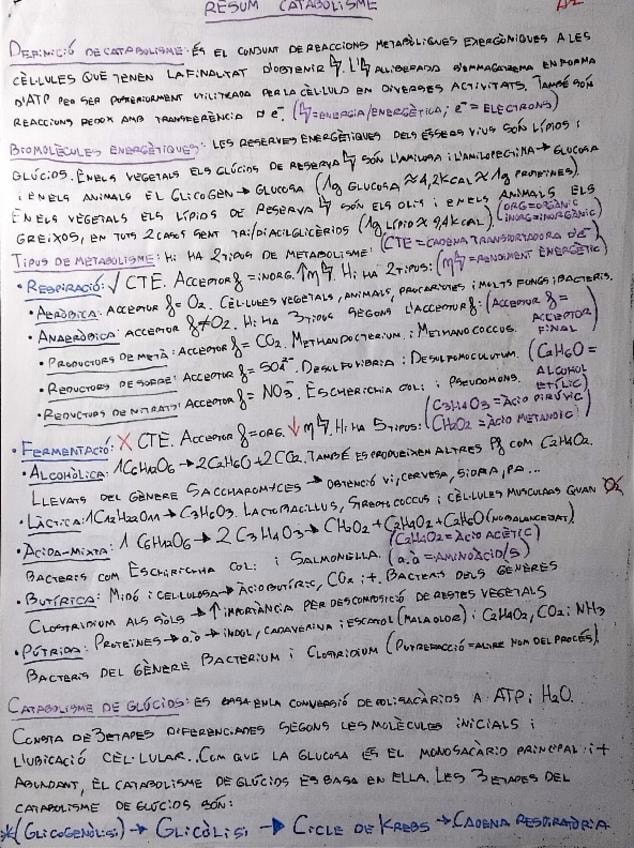 RESUM CATABOLISME
DEFINICIÓ DE CATABOLISME: ÉS EL CONJUNT DE REACCIONS METABÒLIQUES EXERGÒNIQUES A LES
CÈL·LULES QUE TENEN LA FINALITAT D'OBTENIR ϟ. L'ϟ ALLIBERADA D'EMMAGATZEMA EN FORMA
D'ATP PER SER POSTERIORMENT UTILITZADA PER LA CÈL·LULA EN DIVERSES ACTIVITATS. TAMBÉ SÓN
REACCIONS REDOX AMB TRANSFERÈNCIA D'e⁻. (ϟ=ENERGIA/ENERGÈTICA; e⁻= ELECTRONS)
BIOMOLÈCULES ENERGÈTIQUES: LES RESERVES ENERGÈTIQUES DELS ÉSSERS VIUS SÓN LÍPIDS I
GLÚCIDS. EN ELS VEGETALS ELS GLÚCIDS DE RESERVA ϟ SÓN L'AMILOSA I L'AMILOPECTINA → GLUCOSA
I EN ELS ANIMALS EL GLICOGEN → GLUCOSA (1g GLUCOSA ≈ 4,2KCAL ≈ 1g PROTEÏNES).
EN ELS VEGETALS ELS LÍPIDS DE RESERVA ϟ SÓN ELS OLIS I EN ELS ANIMALS ELS
GREIXOS, EN TOTS 2 CASOS SENT TRI/DIACILGLICÈRIDS (1g LÍPID ≈ 9,4KCAL). (ORG=ORGÀNIC INORG=INORGÀNIC)
TIPUS DE METABOLISME: HI HA 2 TIPUS DE METABOLISME: (CTE = CADENA TRANSPORTADORA D'e⁻)
• RESPIRACIÓ: √ CTE. ACCEPTOR f=INORG. ↑ηϟ. HI HA 2 TIPUS: (ηϟ=RENDIMENT ENERGÈTIC)
• AERÒBICA: ACCEPTOR f= O₂. CÈL·LULES VEGETALS, ANIMALS, PROCARIOTES I MOLTS FONGS I BACTERIS.
• ANAERÒBICA: ACCEPTOR f≠O₂. HI HA 3 TIPUS SEGONS L'ACCEPTOR f: (ACCEPTOR f = ACCEPTOR FINAL)
• PRODUCTORS DE METÀ: ACCEPTOR f= CO₂. METHANOBACTERIUM I METHANOCOCCUS.
• REDUCTORS DE SOFRE: ACCEPTOR f= SO₄²⁻. DESULFOVIBRIA I DESULFOMOCULATUM. (C₂H₆O = ALCOHOL ETÍLIC)
• REDUCTORS DE NITRATS: ACCEPTOR f= NO₃⁻. ESCHERICHIA COLI I PSEUDOMONS.
• FERMENTACIÓ: X CTE. ACCEPTOR f=ORG. ↓ηϟ. HI HA 5 TIPUS: (C₃H₄O₃ = ÀCID PIRÚVIC CH₂O₂ = ÀCID METANOIC)
• ALCOHÒLICA: 1C₆H₁₂O₆ → 2C₂H₆O + 2CO₂. TAMBÉ ES PRODUEIXEN ALTRES Pf COM C₂H₄O₂.
LLEVATS DEL GÈNERE SACCHAROMYCES → OBTENCIÓ VI, CERVESA, SIDRA, PA...
• LÀCTICA: 1C₁₂H₂₂O₁₁ → C₃H₆O₃. LACTOBACILLUS, STREPTOCOCCUS I CÈL·LULES MUSCULARS QUAN O₂
• ÀCIDA-MIXTA: 1 C₆H₁₂O₆ → 2 C₃H₄O₃ → CH₂O₂ + C₂H₄O₂ + C₂H₆O (NO BALANCEJAT)
BACTERIS COM ESCHIRICHIA COLI I SALMONELLA. (C₂H₄O₂ = ÀCID ACÈTIC) (a.à = AMINOÀCID/S)
• BUTÍRICA: MIDÓ I CEL·LULOSA → ÀCID BUTÍRIC, CO₂ I +. BACTERIS DELS GÈNERES
CLOSTRIDIUM ALS SÒLS → ↑ IMPORTÀNCIA PER DESCOMPOSICIÓ DE RESTES VEGETALS
• PÚTRIDA: PROTEÏNES → a.à → INDOL, CADAVERINA I ESCATOL (MALA OLOR) I C₂H₄O₂, CO₂ I NH₃
BACTERIS DEL GÈNERE BACTERIUM I CLOSTRIDIUM (PUTREFACCIÓ = ALTRE NOM DEL PROCÉS).
CATABOLISME DE GLÚCIDS: ES BASA EN LA CONVERSIÓ DE POLISACÀRIDS A ATP I H₂O.
CONSTA DE 3 ETAPES DIFERENCIADES SEGONS LES MOLÈCULES INICIALS I
L'UBICACIÓ CÈL·LULAR. COM QUE LA GLUCOSA ÉS EL MONOSACÀRID PRINCIPAL I +
ABUNDANT, EL CATABOLISME DE GLÚCIDS ES BASA EN ELLA. LES 3 ETAPES DEL
CATABOLISME DE GLÚCIDS SÓN:
*(GLICOGENÒLISI) → GLICÒLISI → CICLE DE KREBS → CADENA RESPIRATÒRIA